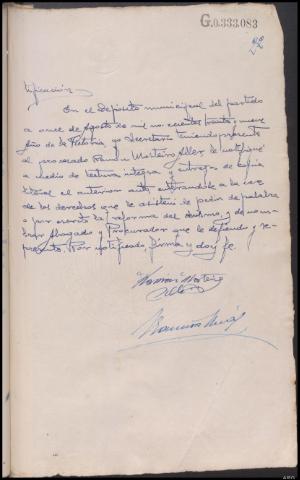 G.0.333.083
tificación
En el Depósito municipal del partido
a once de Agosto de mil novecientos treinta y nueve
Año de la Victoria, yo Secretario teniendo presente
al procesado Ramón Morteiro Aller, le notifiqué
a medio de lectura íntegra y entrega de copia
literal el anterior auto, enterándole a la vez
de los derechos que le asisten de pedir de palabra
o por escrito la reforma del mismo, y de nom-
brar Abogado y Procurador que le defienda y re-
presente. Por notificado, firma y doy fe.
Ramón Morteiro
Aller